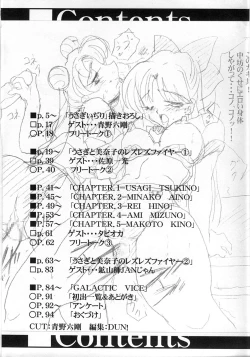 Contents
■p.5～「うさぎいぢり」描きおろし
□p.17 ゲスト・・・青野六剛
○P.48 フリートーク①
■p.19～「うさぎと美奈子のレズレズファイヤー①」
□p.39 ゲスト・・・佐原一光
○P.40 フリートーク②
■P.41～「CHAPTER.1−USAGI TSUKINO」
■P.45～「CHAPTER.2−MINAKO AINO」
■P.49～「CHAPTER.3−REI HINO」
■P.53～「CHAPTER.4−AMI MIZUNO」
■P.57～「CHAPTER.5−MAKOTO KINO」
□p.61 ゲスト・・・タピオカ
○P.62 フリートーク③
■p.63～「うさぎと美奈子のレズレズファイヤー②」
□p.83 ゲスト・・・鉱山師JANじゃん
■P.84～「GALACTIC VICE」
○P.91 「初出一覧&あとがき」
○P.92～「アンケート」
○P.94 「おくづけ」
CUT:青野六剛 編集:DUN!
Contents